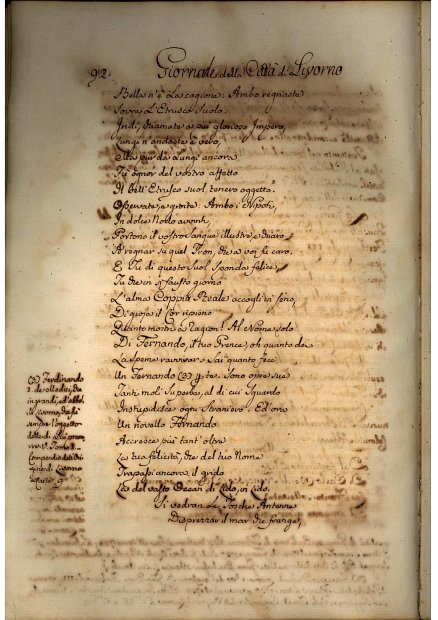 92. Giornale della Città di Livorno
Bella n'è La cagione: Ambo regnaste
Sovra L'Etrusco Suolo.
Indi, chiamate a più glorioso Impero,
Lungi n'andaste è vero,
Ma pur da Lungi ancora
Fu ognor del vostro affetto
Il bell'Etrusco suol tenero oggetto.
Osservate, e gioite: Ambo i Nipoti,
In dolce Nodo avvinti,
Portono il vostro Sangue illustre, e chiaro
A regnar su quel Tron, che a voi fu caro.
E Tu di questo Suol Sponda felice,
Tu che in sì fausto giorno
L'alma Coppia Reale accogli in seno,
Di gioja il Cor ripieno
Quanto mostri a ragion! Al Nome solo
Di Fernando, il tuo Prence, oh quanto dei
La speme ravvivar: Sai quanto fece
Un Fernando (a) per te. Sono opre sue
Tanti moli Superbe, al di cui Sguardo
Instupidisce ogni Straniero. Ed ora
Un novello Fernando
Accresca più tant'oltre
La tua felicità, che del tuo Nome
Trapassi ancora il grido
Là del vasto Ocean di Lido, in Lido.
Si vedran le Tosche Antenne
Disprezzar il mar che frange,
(a) Ferdinando
I. de Medici, che
ingrandì, ed abbellì
Livorno, che fu
sempre l'oggetto
delle di Lui premure
V. Tomo I.
Compendio dell'Origine
di Livorno